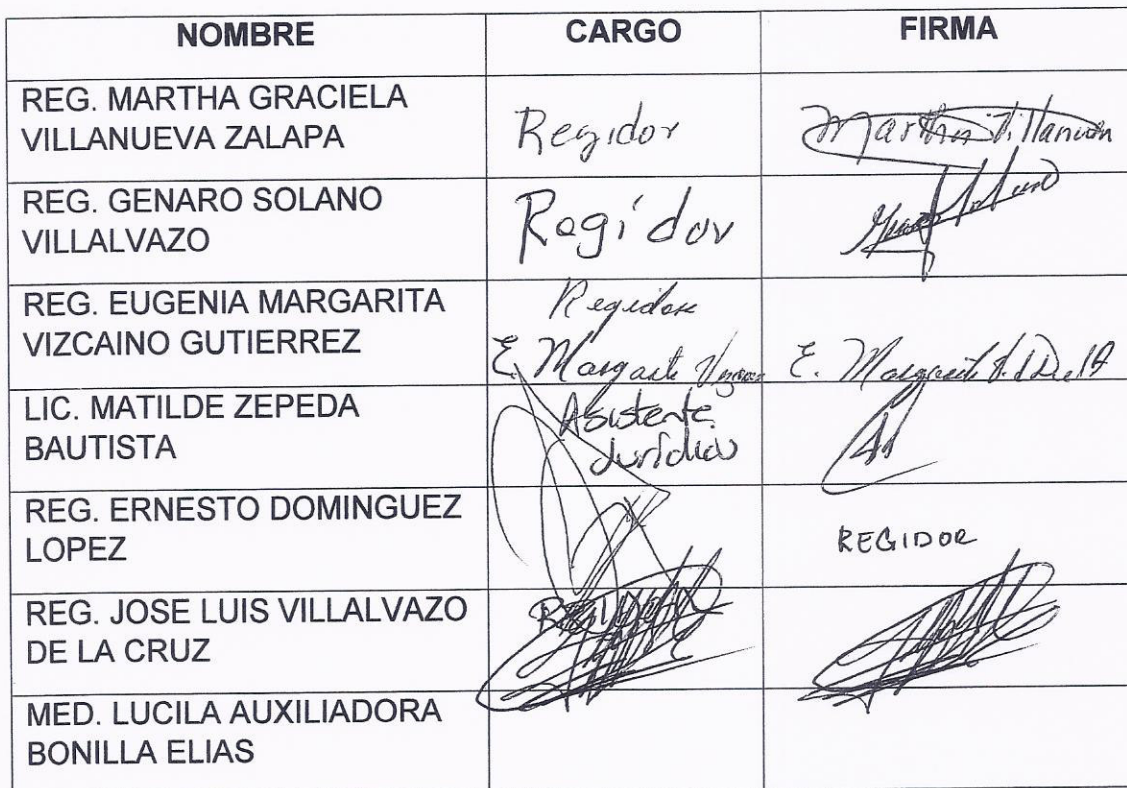 NOMBRE CARGO FIRMA
REG. MARTHA GRACIELA
VILLANUEVA ZALAPA
Regidor
Martha Villanueva
REG. GENARO SOLANO
VILLALVAZO
Regidor
REG. EUGENIA MARGARITA
VIZCAINO GUTIERREZ
Regidora
E. Margarita
E. Margarita
LIC. MATILDE ZEPEDA
BAUTISTA
Asistente
Jurídico
REG. ERNESTO DOMINGUEZ
LOPEZ
REGIDOR
REG. JOSE LUIS VILLALVAZO
DE LA CRUZ
MED. LUCILA AUXILIADORA
BONILLA ELIAS